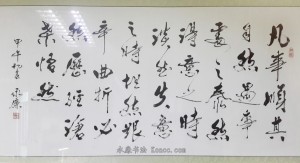 凡事顺其
自然遇事
处之泰然
得意之时
淡然失意
之时坦然艰
辛曲折必
然历经沧
桑悟然
甲午初冬永康
永康书法 Ksacc.com